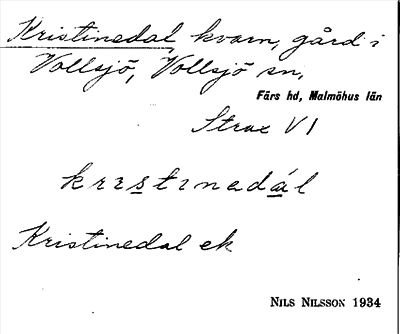 Kristinedal, kvarn, gård i
Vollsjö, Vollsjö sn,
Färs hd, Malmöhus län
Strax VI
krɪstɪnedál
Kristinedal ek
NILS NILSSON 1934